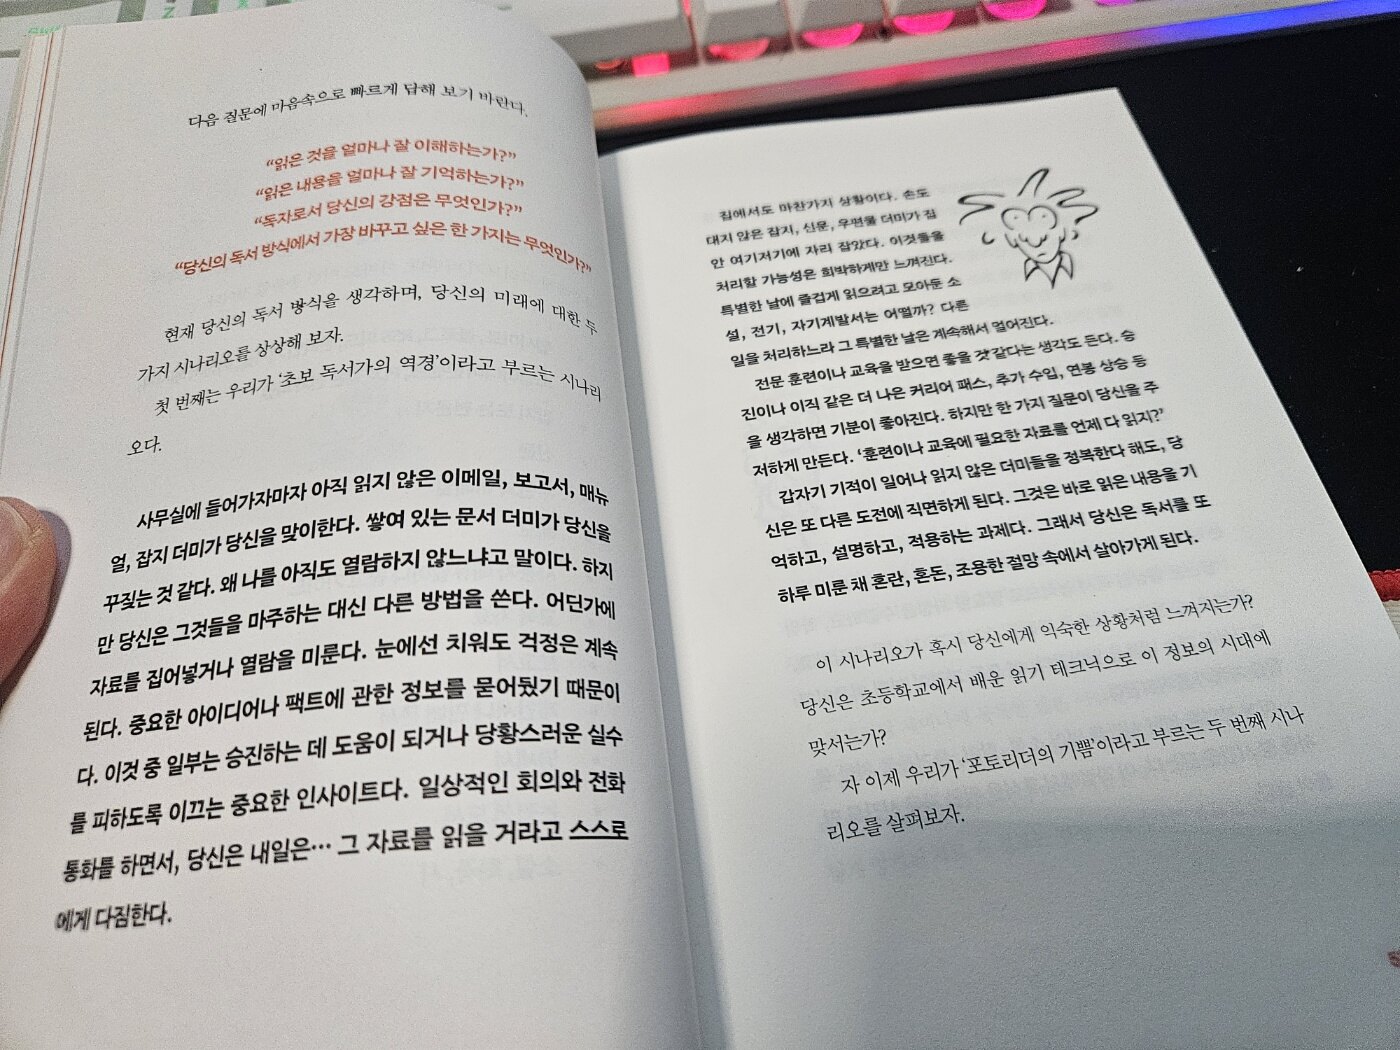 다음 질문에 마음속으로 빠르게 답해 보기 바란다.
“읽은 것을 얼마나 잘 이해하는가?”
“읽은 내용을 얼마나 잘 기억하는가?”
“독자로서 당신의 강점은 무엇인가?”
“당신의 독서 방식에서 가장 바꾸고 싶은 한 가지는 무엇인가?”
현재 당신의 독서 방식을 생각하며, 당신의 미래에 대한 두
가지 시나리오를 상상해 보자.
첫 번째는 우리가 ‘초보 독서가의 역경’이라고 부르는 시나리
오다.
사무실에 들어가자마자 아직 읽지 않은 이메일, 보고서, 매뉴
얼, 잡지 더미가 당신을 맞이한다. 쌓여 있는 문서 더미가 당신을
꾸짖는 것 같다. 왜 나를 아직도 열람하지 않느냐고 말이다. 하지
만 당신은 그것들을 마주하는 대신 다른 방법을 쓴다. 어딘가에
자료를 집어넣거나 열람을 미룬다. 눈에선 치워도 걱정은 계속
된다. 중요한 아이디어나 팩트에 관한 정보를 묻어뒀기 때문이
다. 이것 중 일부는 승진하는 데 도움이 되거나 당황스러운 실수
를 피하도록 이끄는 중요한 인사이트다. 일상적인 회의와 전화
통화를 하면서, 당신은 내일은… 그 자료를 읽을 거라고 스스로
에게 다짐한다.
집에서도 마찬가지 상황이다. 손도
대지 않은 잡지, 신문, 우편물 더미가 집
안 여기저기에 자리 잡았다. 이것들을
처리할 가능성은 희박하게만 느껴진다.
특별한 날에 즐겁게 읽으려고 모아둔 소
설, 전기, 자기계발서는 어떨까? 다른
일을 처리하느라 그 특별한 날은 계속해서 멀어진다.
전문 훈련이나 교육을 받으면 좋을 것 같다는 생각도 든다. 승
진이나 이직 같은 더 나은 커리어 패스, 추가 수입, 연봉 상승 등
을 생각하면 기분이 좋아진다. 하지만 한 가지 질문이 당신을 주
저하게 만든다. ‘훈련이나 교육에 필요한 자료를 언제 다 읽지?’
갑자기 기적이 일어나 읽지 않은 더미들을 정복한다 해도, 당
신은 또 다른 도전에 직면하게 된다. 그것은 바로 읽은 내용을 기
억하고, 설명하고, 적용하는 과제다. 그래서 당신은 독서를 또
하루 미룬 채 혼란, 혼돈, 조용한 절망 속에서 살아가게 된다.
이 시나리오가 혹시 당신에게 익숙한 상황처럼 느껴지는가?
당신은 초등학교에서 배운 읽기 테크닉으로 이 정보의 시대에
맞서는가?
자 이제 우리가 ‘포토리더의 기쁨’이라고 부르는 두 번째 시나
리오를 살펴보자.